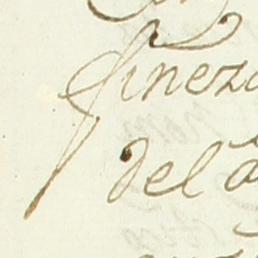 fineza
del a